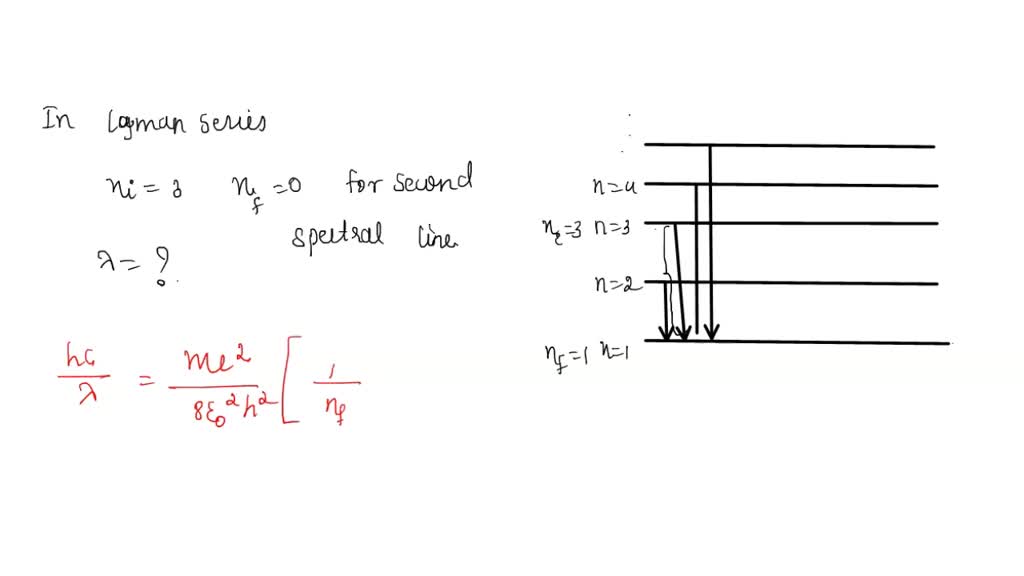 In Lyman series
ni = 3 nf = 0 for second
spectral line
λ = ?
hc/λ = me²/8ε₀²h² [ 1/nf
n=4
ni=3 n=3
n=2
nf=1 n=1